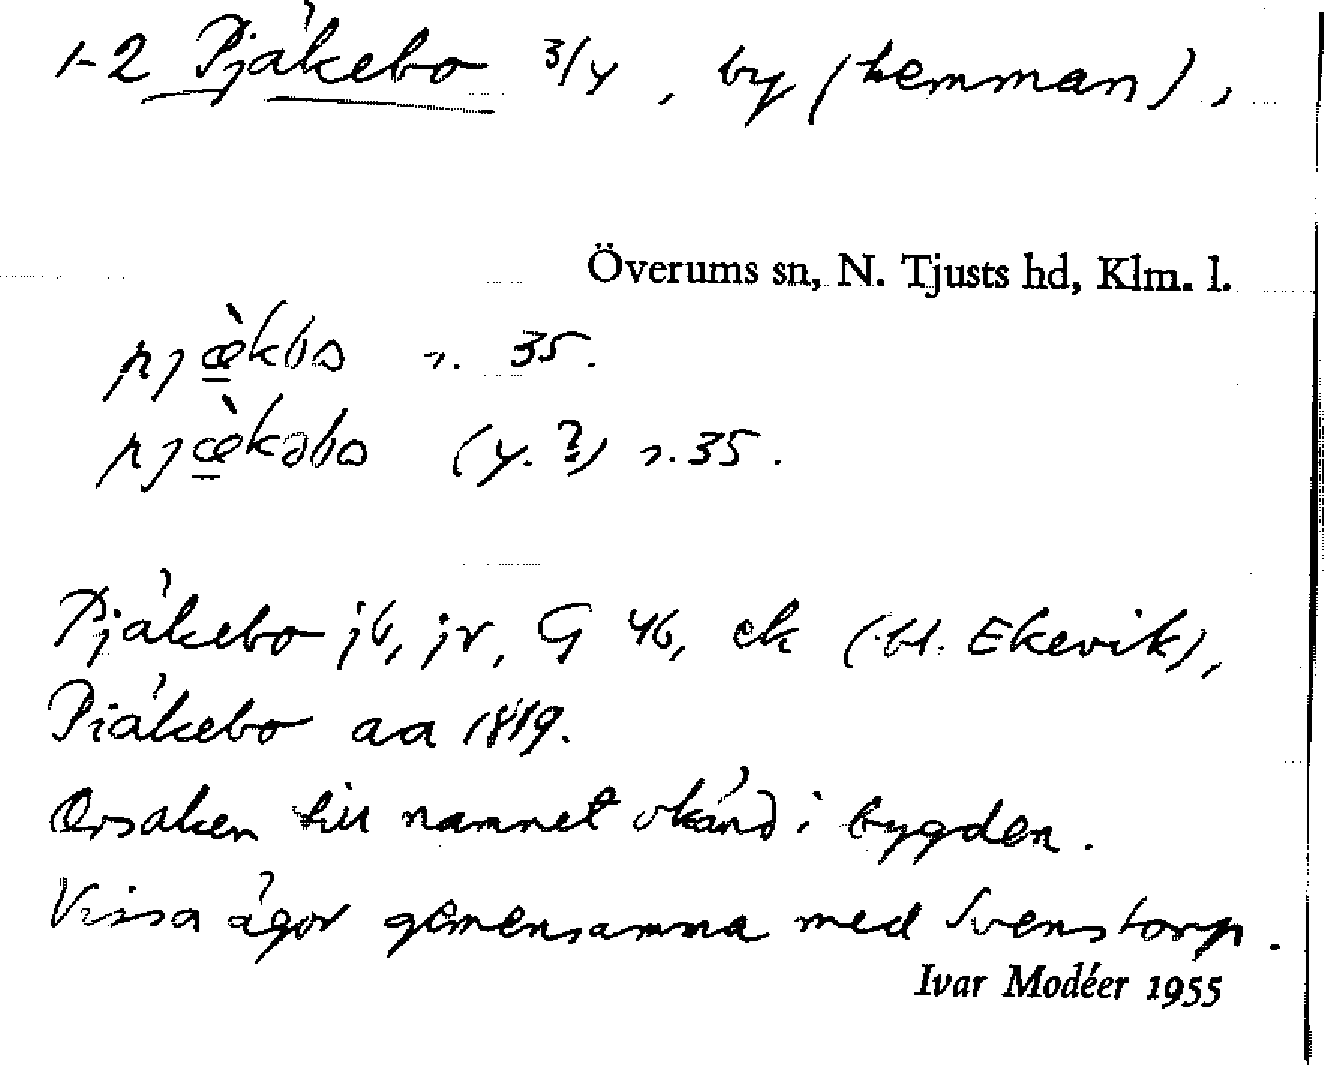 1-2 Pjåkebo 3/4, by (hemman),
Överums sn, N. Tjusts hd, Klm. l.
pjæ̀kbo 35.
pjæ̀kəbo (y. ?) 35.
Pjåkebo jb, jr, G 46, ek (bl. Ekevik),
Piåkebo aa 1819.
Orsaken till namnet okänd i bygden.
Vissa ägor gemensamma med Svenstorp.
Ivar Modéer 1955